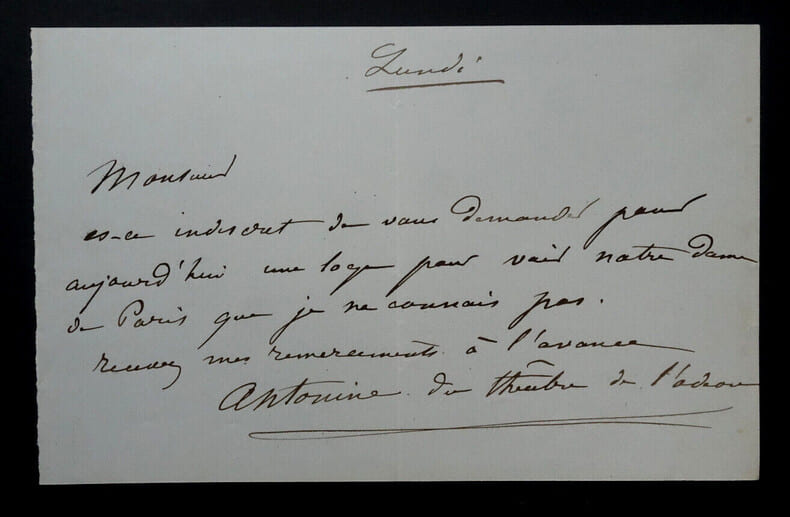 Lundi
Monsieur
es-ce indiscret de vous demander pour
aujourd'hui une loge pour voir notre dame
de Paris que je ne connais pas.
recevez mes remerciements à l'avance
Antonine du théâtre de l'odéon